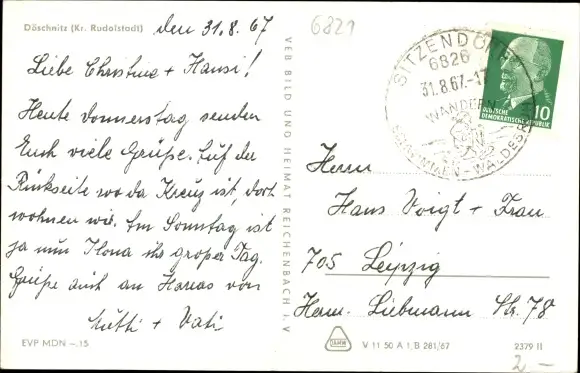 Döschnitz (Kr. Rudolstadt)
den 31.8.67
Liebe Christine + Hansi!
Heute Donnerstag senden
Euch viele Grüße. Auf der
Rückseite wo da Kreuz ist, dort
wohnen wir. Am Sonntag ist
ja nun Ilona ihr großer Tag.
Grüße auch an Hannas von
Mutti + Vati
EVP MDN –.15
VEB BILD UND HEIMAT REICHENBACH I. V.
6821
SITZENDORF
6826
31.8.67.-17
WANDERN
10
DEUTSCHE
DEMOKRATISCHE REPUBLIK
Herrn
Hans Voigt + Frau
705 Leipzig
Herm. Liebmann Str. 78
V 11 50 A 1 B 281/67
2379 II
2.–